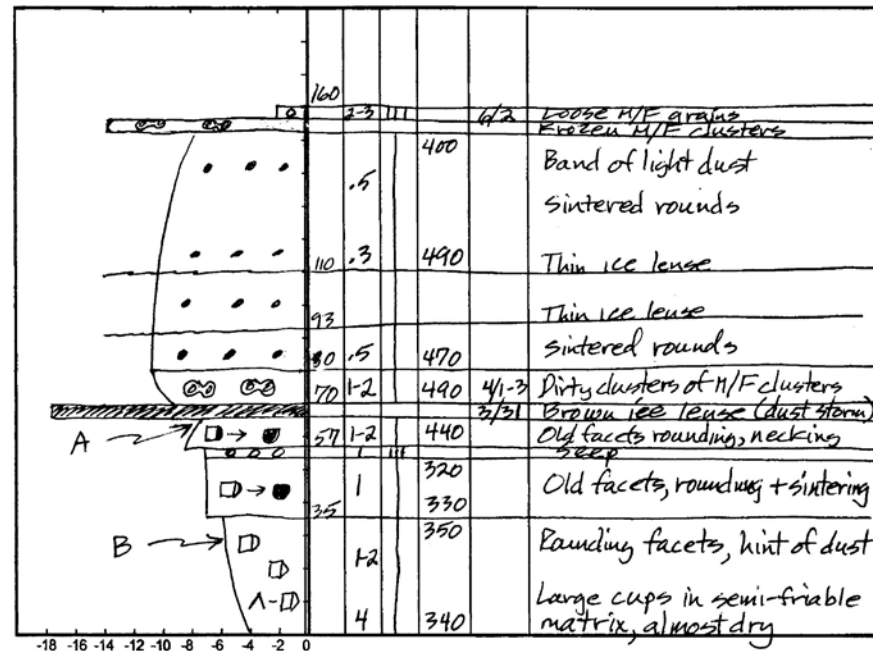 160
2-3 III 6/2 Loose M/F grains
Frozen M/F clusters
400
Band of light dust
.5
sintered rounds
110 .3 490 Thin ice lense
93 Thin ice lense
80 .5 470 sintered rounds
70 1-2 490 4/1-3 Dirty clusters of M/F clusters
3/31 Brown ice lense (dust storm)
A 57 1-2 440 Old facets rounding, necking
1 III seep
320
1 Old facets, rounding + sintering
35 330
350
B Rounding facets, hint of dust
1-2
Large cups in semi-friable
4 340 matrix, almost dry
-18 -16 -14 -12 -10 -8 -6 -4 -2 0